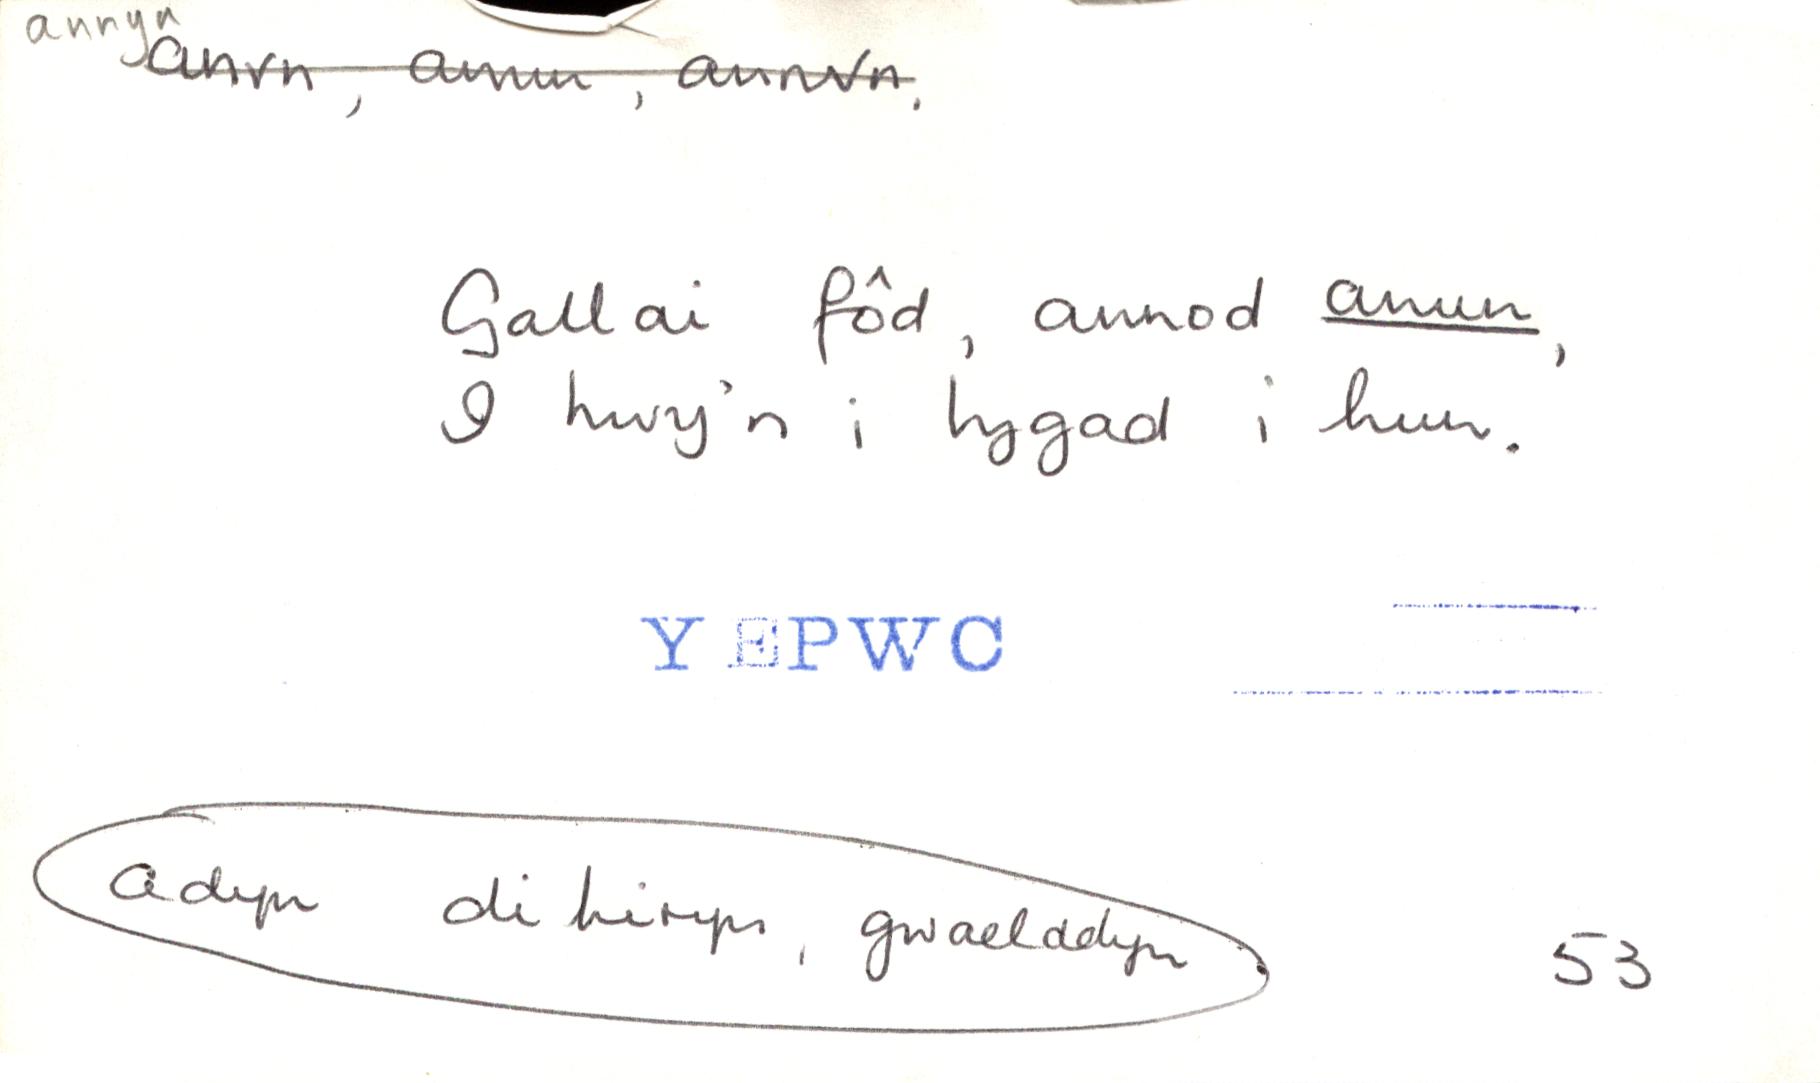 annyn
anvn, anun, annvn.
Gallai fôd, annod anun,
I hwy'n i lygad i hun.
Y E PWC
adyn dihiryn, gwaelddyn
53